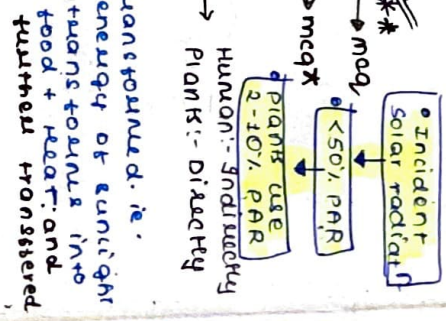 **
→ mcq
• Incident
Solar radiatn
• <50% PAR
→ mcq*
• Plant use
2-10% PAR
→ Human:- Indirectly
Plant:- Directly
ansformed. ie.
energy of sunlight
transforms into
food + heat; and
further transfered